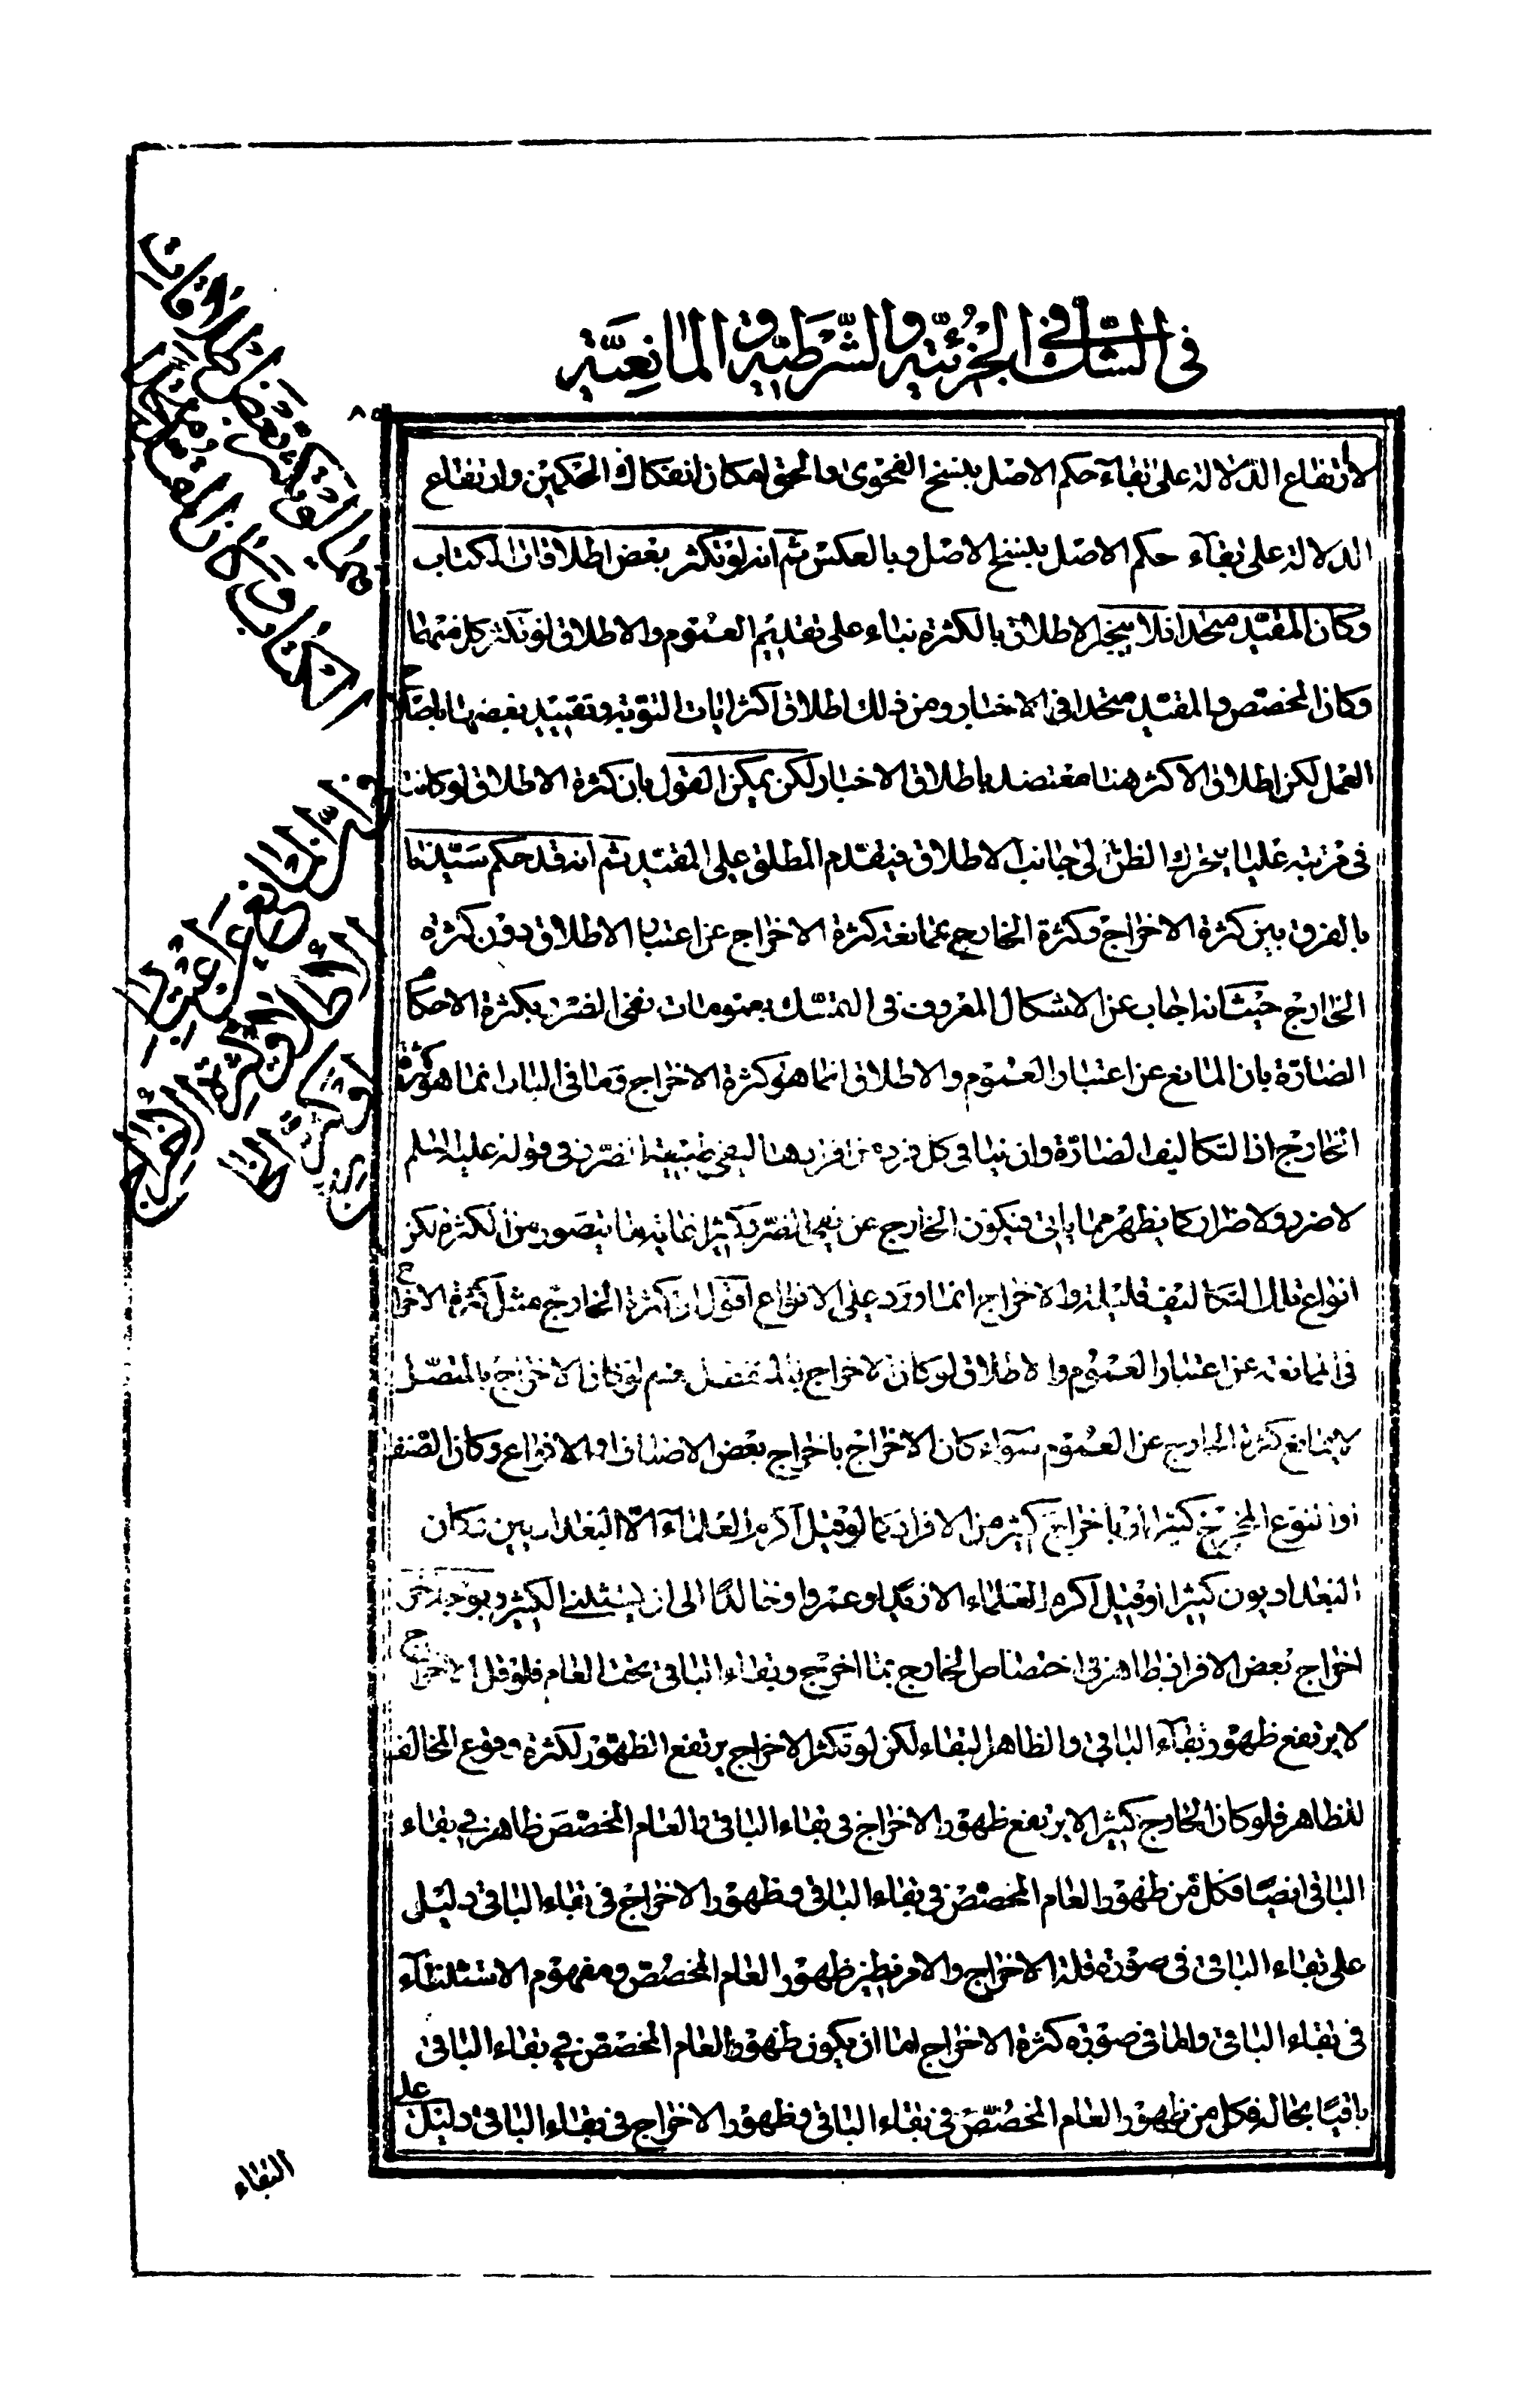 في الشك في الجزئية والشرطية والمانعية
٨٥
لارتفاع الدلالة على بقاء حكم الاصل بنسخ الفحوى والحق امكان انفكاك الحكمين وارتفاع
الدلالة على بقاء حكم الاصل بنسخ الاصل وبالعكس ثم انه لو تكثر بعض اطلاقات الكتاب
وكان المقيد متحدا فلا ينجبر الاطلاق بالكثرة بناء على تقديم العموم والاطلاق لو تكثر كل منهما
وكان المخصص والمقيد متحدا في الاخبار ومن ذلك اطلاق اكثر ايات التوبة وتقييد بعضها باصلاح
العمل لكن اطلاق الاكثر هنا معتضد باطلاق الاخبار لكن يمكن القول بان كثرة الاطلاق لو كانت
في مرتبة عليا يتحرك الظن الى جانب الاطلاق فيقدم المطلق على المقيد ثم انه قد حكم سيدنا
بالفرق بين كثرة الاخراج وكثرة الخارج بممانعة كثرة الاخراج عن اعتبار الاطلاق دون كثرة
الخارج حيث انه اجاب عن الاشكال المعروف في التمسك بعمومات نفي الضرر بكثرة الاحكام
الضارة بان المانع عن اعتبار العموم والاطلاق انما هو كثرة الاخراج وما في الباب انما هو كثرة
الخارج اذ التكاليف الضارة وان ينافي كل فرد من افرادها لنفي طبيعة الضرر في قوله عليه السلم
لا ضرر ولا ضرار كما يظهر مما ياتي فيكون الخارج عن نفي الضرر كثيرا غاية ما يتصور من الكثرة لكن
انواع تلك التكاليف قليلة والاخراج انما ورد على الانواع اقول ان كثرة الخارج مثل كثرة الاخراج
في الممانعة عن اعتبار العموم والاطلاق لو كان الاخراج بالمنفصل نعم لو كان الاخراج بالمتصل
لا يمانع كثرة الخارج عن العموم سواء كان الاخراج باخراج بعض الاصناف او الانواع وكان الصنف
او النوع المخرج كثيرا او باخراج كثير من الافراد كما لو قيل اكرم العلماء الا البغداديين وكان
البغداديون كثيرا او قيل اكرم العلماء الا زيدا وعمروا وخالدا الى ان يستثنى الكثير وبوجه اخر
اخراج بعض الافراد ظاهر في اختصاص الخارج بما اخرج وبقاء الباقي تحت العام فلو قل الاخراج
لا يرتفع ظهور بقاء الباقي والظاهر البقاء لكن لو تكثر الاخراج يرتفع الظهور لكثرة وقوع المخالف
للظاهر فلو كان الخارج كثيرا لا يرتفع ظهور الاخراج في بقاء الباقي والعام المخصص ظاهر في بقاء
الباقي ايضا فكل من ظهور العام المخصص في بقاء الباقي وظهور الاخراج في بقاء الباقي دليل
على بقاء الباقي في صورة قلة الاخراج والامر نظير ظهور العام المخصص ومفهوم الاستثناء
في بقاء الباقي واما في صورة كثرة الاخراج اما ان يكون ظهور العام المخصص في بقاء الباقي
باقيا بحاله فكل من ظهور العام المخصص في بقاء الباقي وظهور الاخراج في بقاء الباقي دليل على
البقاء